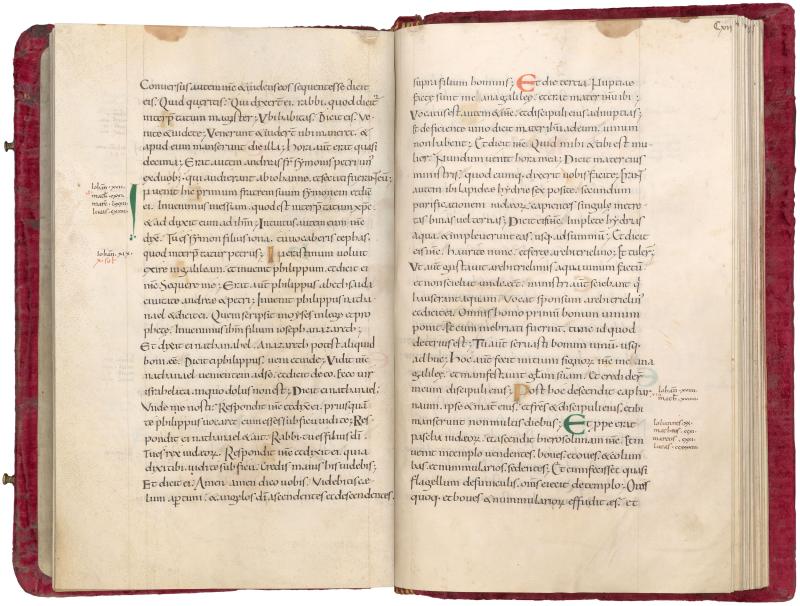 Conuersus autem ihs & uidens eos sequentes se dicit
eis. Quid queritis; Qui dixerunt ei. rabbi, quod dicit̄
interp̄tatum magister; Vbi habitas. Dicit eis. Ve-
nite & uidete; Venerunt & uiderunt ubi maneret. &
apud eum manserunt die illa; hora aut̄ erat quasi
decima; Erat autem andreas fr̄ symonis petri un'
ex duob; qui audierant ab iohanne. et secuti fuerant eū;
Inuenit hic primum fratrem suum symonem et dic̄
ei. Inuenimus messiam. quod est interp̄tatum xp̄c.
& adduxit eum ad ihm; Intuitus autem eum ihc
dix̄. Tu es symon filius iona. tu uocaberis cephas.
quod interp̄tatur petrus; In crastinum uoluit
exire in galileam. et inuenit philippum. et dicit ei
ihc. Sequere me; Erat aut̄ philippus a bethsaida
ciuitate andree & petri; Inuenit philippus natha
nael. et dicit ei. Quem scripsit moyses in lege et pro
phete. Inuenimus ihm filium ioseph a nazareth;
Et dixit ei nathanahel. A nazareth potest aliquid
boni eē. Dicit ei philippus. ueni et uide; Vidit ihc
nathanael uenientem ad se. et dicit de eo. Ecce uir
israhelita. in quo dolus non est; Dicit ei nathanael.
Vnde me nosti; Respondit ihc et dix̄ ei. priusquā
te philippus uocaret. cum esses sub ficu uidi te; Res-
pondit ei nathanael & ait. Rabbi. tu es filius dī.
Tu es rex iudeorꝝ. Respondit ihc et dixit ei. quia
dixi tibi. uidi te sub ficu. credis. maius his uidebis;
Et dicit ei. Amen amen dico uobis. Videbitis cæ-
lum ap̄tum. & angelos dī ascendentes et descendentes
iohan̄ · xvii.
iohan̄ · xix.
supra filium hominis; Et die tercia nuptiae
factę sunt in cana galileę. et erat mater ihū ibi;
Vocatus est autem & ihc. et discipuli eius ad nuptias;
Et deficiente uino dicit mater ihū ad eum. uinum
non habent; Et dicit ihc. Quid mihi & tibi est mu-
lier. Nundum uenit hora mea; Dicit mater eius
ministris. quodcumq; dixerit uobis facite; Erant
autem ibi lapideę hydrię sex positę. secundum
purificationem iudeorꝝ. capientes singulę metre-
tas binas uel ternas; Dicit eis ihc. Implete hydrias
aqua. & impleuerunt eas. usq; ad summū; Et dicit
eis ihc. haurite nunc. et ferte architriclino; Et tuler̄;
Vt aut̄ gustauit architriclinus aqua uinum factū
et non sciebat unde eēt. ministri aut̄ sciebant q'
hauserant aquam. Vocat sponsum architriclin'
et dicit ei. Omnis homo primū bonum uinum
ponit. Et cum inebriati fuerint. tunc id quod
deterius est; Tu aut̄ seruasti bonum uinū. usq;
adhuc; Hoc aut̄ fecit initium signorꝝ ihc in cana
galileę. et manifestauit gl̄am suam. Et credider̄
in eum discipuli eius; Post hoc descendit caphar
naum. ipse & mat̄ eius. et fr̄es & discipuli eius. et ibi
manserunt non multis diebus; Et p̄pe erat
pascha iudeorꝝ. et ascendit hierosolimam ihc. Et in
uenit in templo uendentes. boues. et oues. & colum
bas. et nummularios sedentes; Et cum fecisset quasi
flagellum de funiculis. omīs eiecit de templo. Oues
quoq; et boues & nummulariorꝝ effudit æs. et